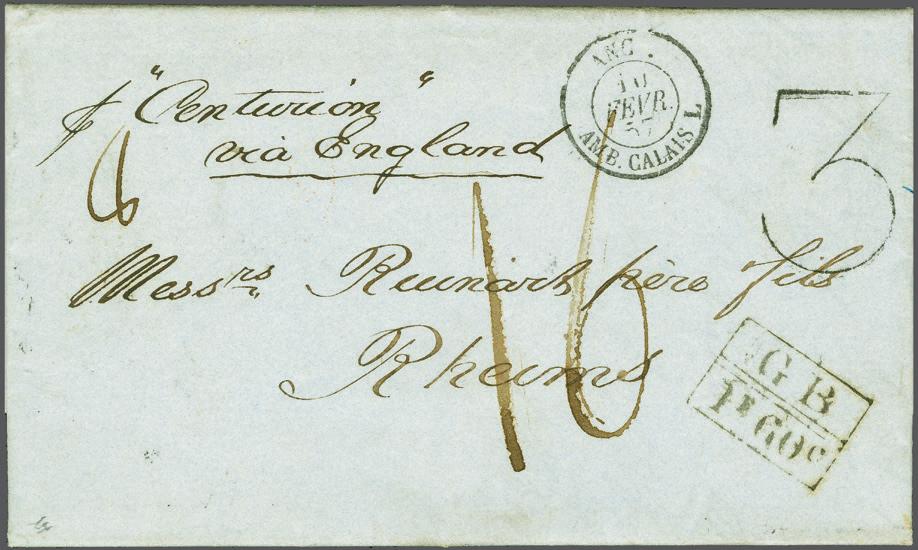 ANG.
10
FEVR.
57
AMB. CALAIS L
p "Centurion"
via England
3
6
16
Messrs Ruinart père fils
Rheims
G B
1F 60c